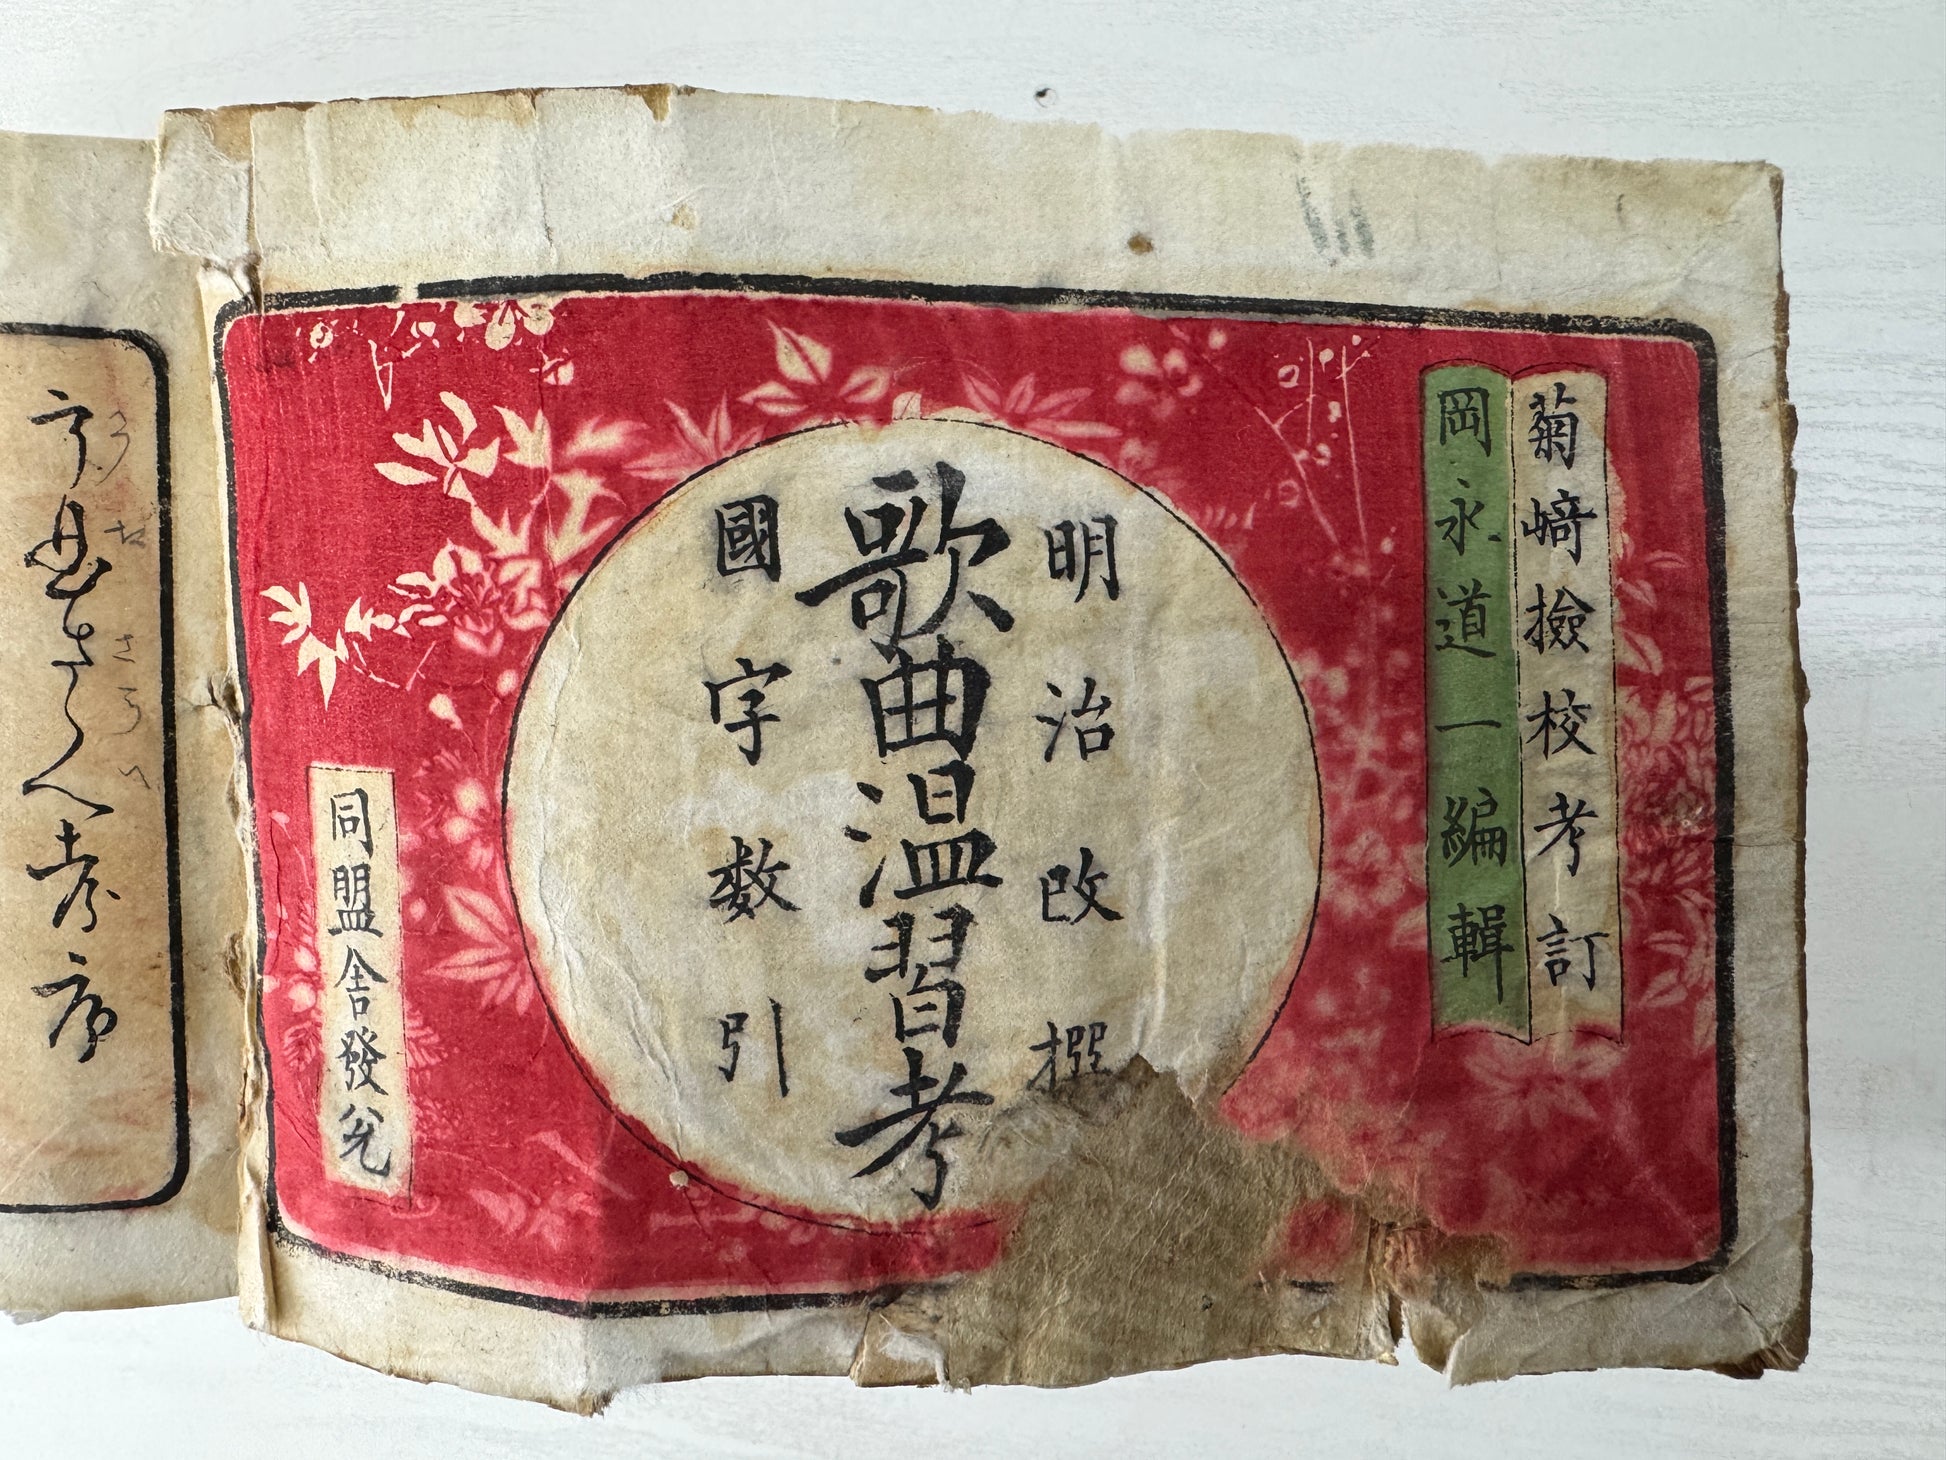 菊﨑撿校考訂
岡永道一編輯
明治改撰
歌曲温習考
國字数引
同盟舎發兌
歌曲さらへ考序
うた
さらへ